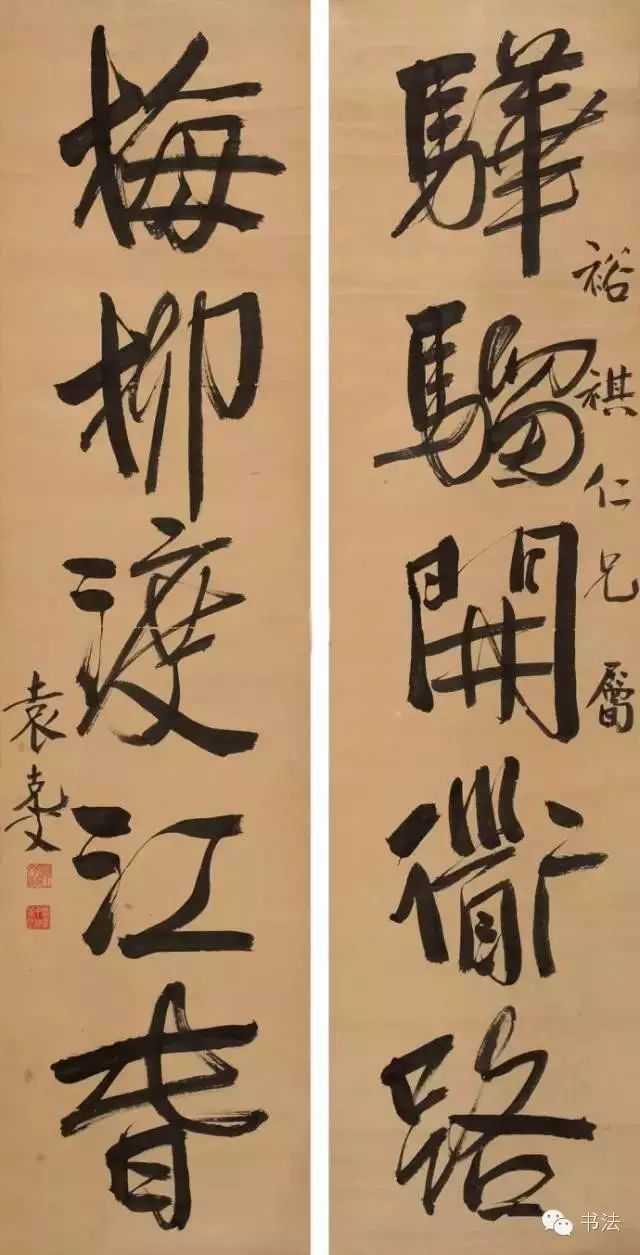 裕祺仁兄屬
驊騮開衜路
梅柳渡江春
袁克文
书法